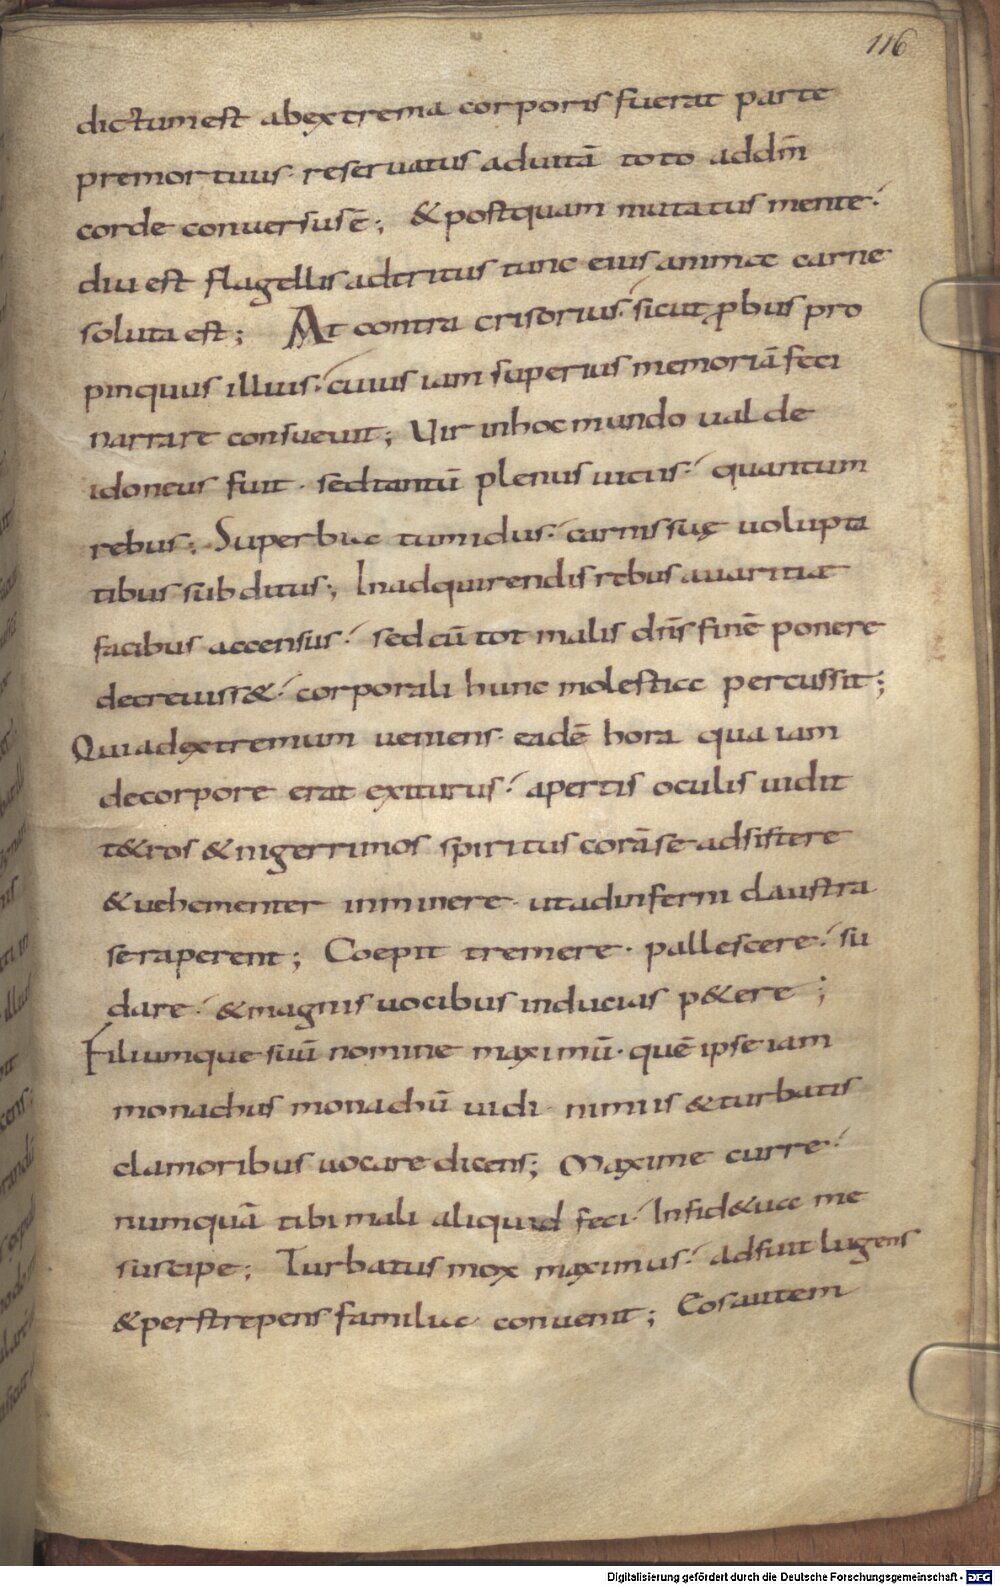 116
dictum est ab extrema corporis fuerat parte
premortuus· reseruatus ad uitā toto ad dn̄m
corde conuersus ē; & postquam mutatus mente·
diu est flagellis adtritus tunc eius animae carne
soluta est; At contra crisorius· sicut ꝓbus pro
pinquus illius· cuius iam superius memoriā feci
narrare consueuit; Uir in hoc mundo ual de
idoneus fuit· sed tantū plenus uitiis· quantum
rebus; Superbiae tumidus· carnis suę uolupta
tibus subditus; In adquirendis rebus auaritiae
facibus accensus· sed cū tot malis dn̄s finē ponere
decreuiss&· corporali hunc molestiae percussit;
Qui ad extremum ueniens· eadē hora qua iam
de corpore erat exiturus· apertis oculis uidit
t&ros & nigerrimos spiritus corā se adsistere
& uehementer inminere· ut ad inferni claustra
se raperent; Coepit tremere· pallescere· su
dare· & magnis uocibus inducias p&ere;
Filiumque suū nomine maximū· quē ipse iam
monachus monachū uidi· nimiis & turbatis
clamoribus uocare dicens; Maxime curre·
numquā tibi mali aliquid feci· In fid& uae me
suscipe; Turbatus mox maximus· adfuit lugens
& perstrepens familiae conuenit; Eos autem
Digitalisierung gefördert durch die Deutsche Forschungsgemeinschaft - DFG